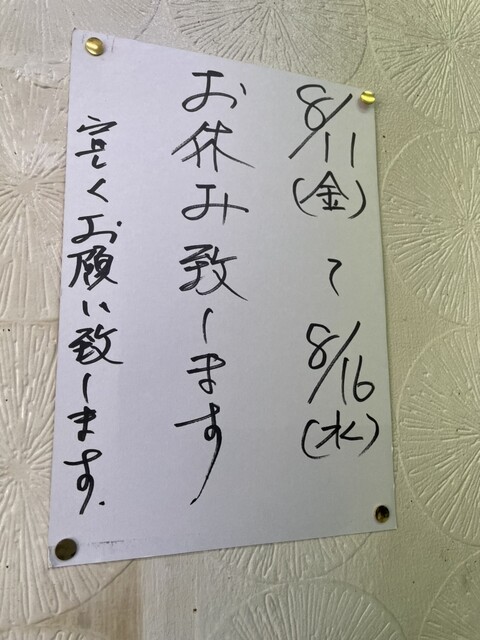 8/11(金)~8/16(水)
お休み致します
宜しくお願い致します.